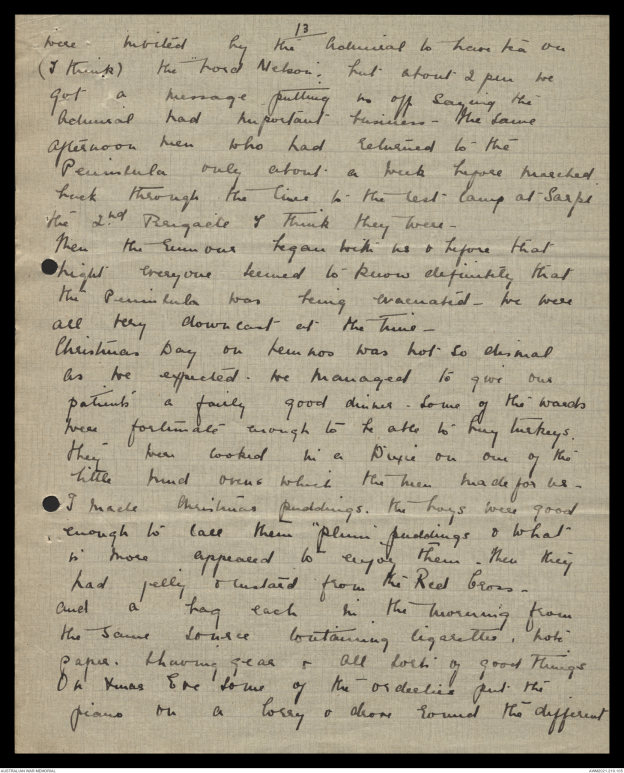 13
were invited by the Admiral to have tea on
(I think) the "Lord Nelson", but about 2 pm we
got a message putting us off saying the
Admiral had important business - The same
afternoon men who had returned to the
Peninsula only about a week before marched
back through the lines to the rest camp at Sarpi
the 2nd Brigade I think they were -
Then the rumours began with us & before that
night everyone seemed to know definitely that
the Peninsula was being evacuated - We were
all very downcast at the time -
Christmas Day on Lemnos was not so dismal
as we expected - We managed to give our
patients a fairly good dinner - Some of the wards
were fortunate enough to be able to buy turkeys.
They were cooked in a Dixie on one of the
little mud ovens which the men made for us -
I made Christmas puddings. The boys were good
enough to call them "plum puddings & what
is more appeared to enjoy them. Then they
had jelly & custard from the Red Cross -
and a bag each in the morning from
the same source containing cigarettes, note
paper. Shaving gear & all sorts of good things
On Xmas Eve some of the orderlies put the
piano on a lorry & drove round the different
AUSTRALIAN WAR MEMORIAL